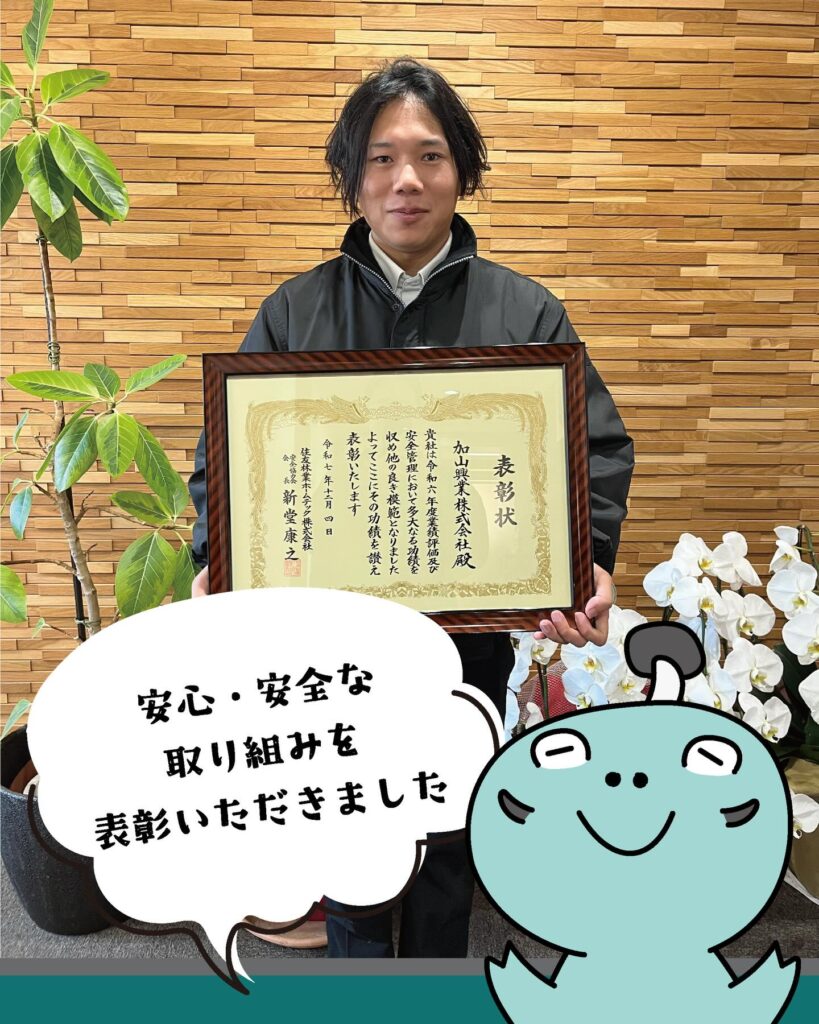 表彰状
加山興業株式会社殿
貴社は令和六年度業績評価及び
安全管理において多大なる功績を
収め他の良き模範となりました
よってここにその功績を讃え
表彰いたします
令和七年十二月四日
住友林業ホームテック株式会社
安全協力会
会長 新堂康之
安心・安全な
取り組みを
表彰いただきました